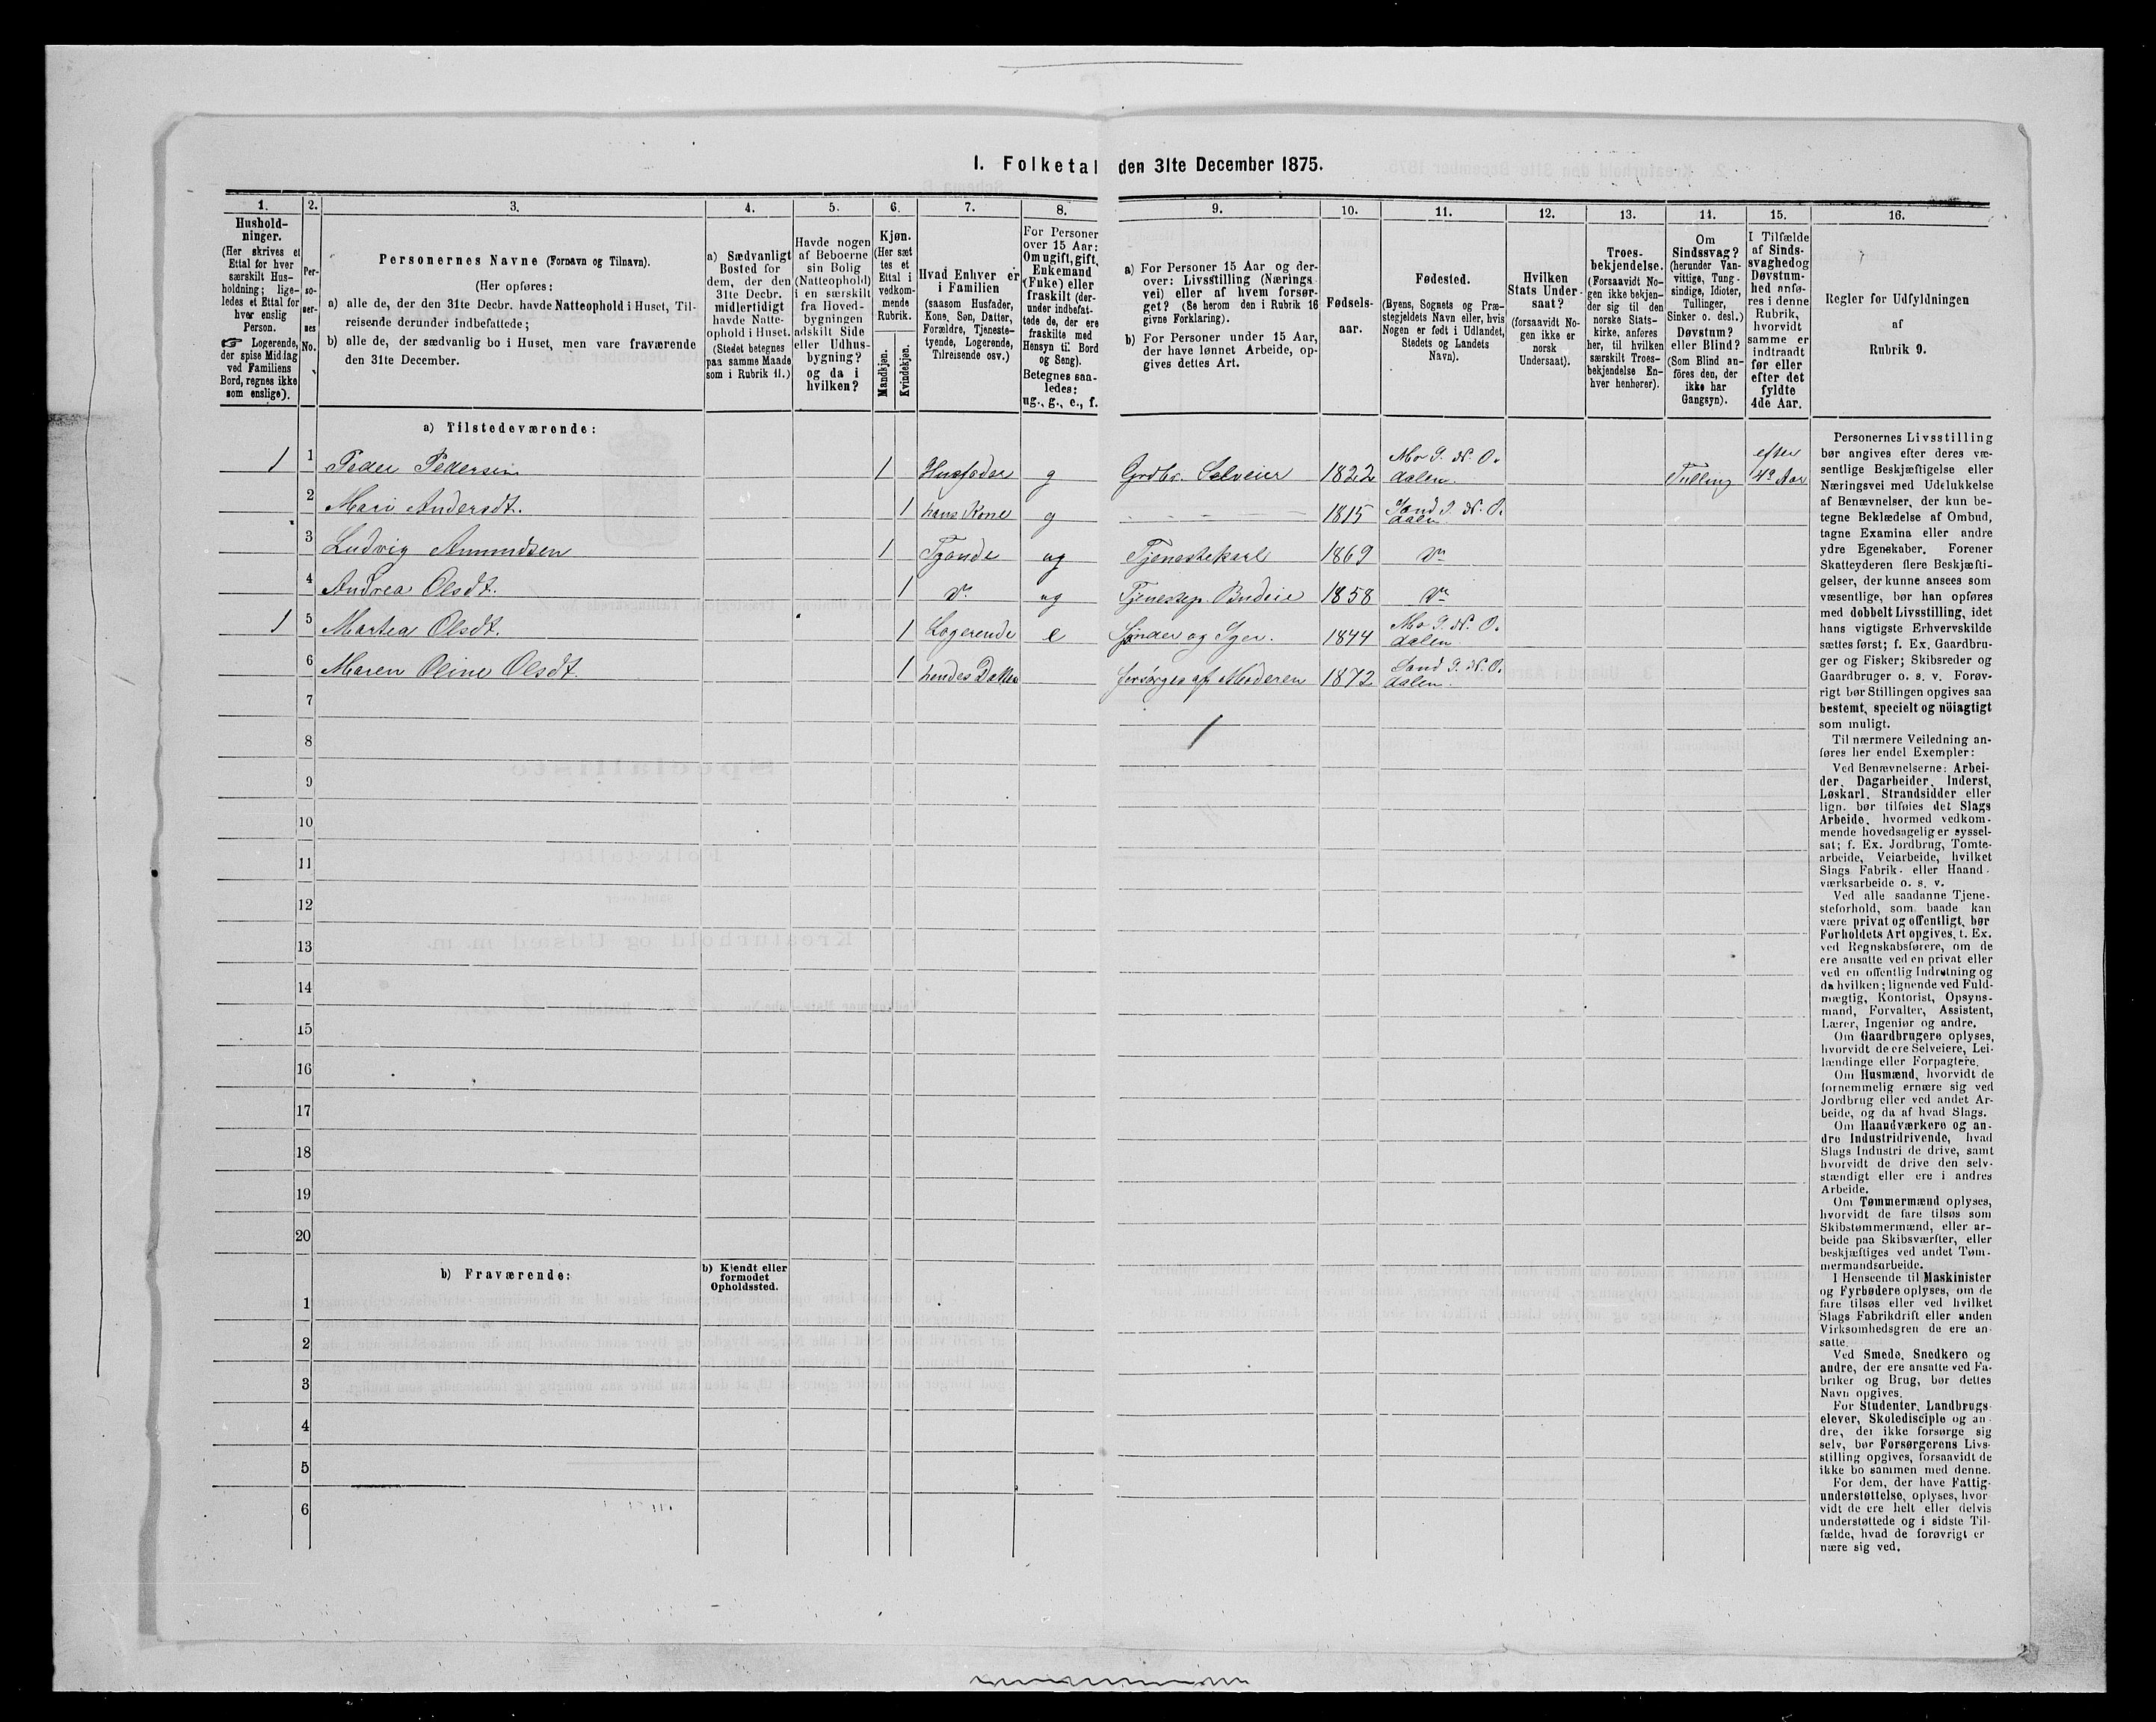 I. Folketal den 31te December 1875.
1.
Hushold-
ninger.
(Her skrives et
Ettal for hver
særskilt Hus-
holdning; lige-
ledes et Ettal for
hver enslig
Person.
☞ Logerende,
der spise Middag
ved Familiens
Bord, regnes ikke
som enslige).
2.
Per-
so-
ner-
nes
No.
3.
Personernes Navne (Fornavn og Tilnavn).
(Her opføres:
a) alle de, der den 31te Decbr. havde Natteophold i Huset, Til-
reisende derunder indbefattede;
b) alle de, der sædvanlig bo i Huset, men vare fraværende
den 31te December.
4.
a) Sædvanligt
Bosted for
dem, der den
31te Decbr.
midlertidigt
havde Natte-
ophold i Huset.
(Stedet betegnes
paa samme Maade
som i Rubrik 11.)
5.
Havde nogen
af Beboerne
sin Bolig
(Natteophold)
i en særskilt
fra Hoved-
bygningen
adskilt Side
eller Udhus-
bygning?
og da i
hvilken?
6.
Kjøn.
(Her sæt
tes et
Ettal i
vedkom-
mende
Rubrik.
Mandkjøn.
Kvindekjøn.
7.
Hvad Enhver er
i Familien
(saasom Husfader,
Kone, Søn, Datter,
Forældre, Tjeneste-
tyende, Logerende,
Tilreisende osv.)
8.
For Personer
over 15 Aar:
Om ugift, gift,
Enkemand
(Enke) eller
fraskilt (der-
under indbefat-
tede de, der ere
fraskilte med
Hensyn til Bord
og Seng).
Betegnes saa-
ledes:
ug., g., e., f.
9.
a) For Personer 15 Aar og der-
over: Livsstilling (Nærings
vei) eller af hvem forsør-
get? (Se herom den i Rubrik 16
givne Forklaring).
b) For Personer under 15 Aar,
der have lønnet Arbeide, op-
gives dettes Art.
10.
Fødsels-
aar.
11.
Fødested.
(Byens, Sognets og Præ-
stegjeldets Navn eller, hvis
Nogen er født i Udlandet,
Stedets og Landets
Navn).
12.
Hvilken
Stats Under-
saat?
(forsaavidt No-
gen ikke er
norsk
Undersaat).
13.
Troes-
bekjendelse.
(Forsaavidt No-
gen ikke bekjen-
der sig til den
norske Stats-
kirke, anføres
her, til hvilken
særskilt Troes-
bekjendelse En-
hver henhører).
14.
Om
Sindssvag?
(herunder Van-
vittige, Tung-
sindige, Idioter,
Tullinger,
Sinker o. desl.)
Døvstum?
eller Blind?
(Som Blind an-
føres den, der
ikke har
Gangsyn).
15.
I Tilfælde
af Sinds-
svaghed og
Døvstum-
hed anfø-
res i denne
Rubrik,
hvorvidt
samme er
indtraadt
før eller
efter det
fyldte
4de Aar.
16.
Regler for Udfyldningen
af
Rubrik 9.
a) Tilstedeværende:
1 1 Peder Pedersen 1 Husfader g Grdbr. Selveier 1822 Mo S. N. O. dalen. Tulling efter 4de Aar
2 Mari Andersdt. 1 hans Kone g 1815 Sand S. N. O. dalen
3 Ludvig Amundsen 1 Tyende ug Tjenestekarl 1869 Do
4 Andrea Olsdt. 1 Do ug Tjenestep. Budeie 1858 Do
1 5 Martea Olsdt. 1 Logerende e Spinder og Syer. 1844 Mo S. N. O. dalen
6 Maren Oline Olsdt. 1 hendes Datter forsørges af Moderen 1872 Sand S. N. O. dalen.
7
8
9
10
11
12
13
14
15
16
17
18
19
20
b) Fraværende:
b) Kjendt eller
formodet
Opholdssted.
1
2
3
4
5
6
Personernes Livsstilling
bør angives efter deres væ-
sentlige Beskjæftigelse eller
Næringsvei med Udelukkelse
af Benævnelser, der kun be-
tegne Beklædelse af Ombud,
tagne Examina eller andre
ydre Egenskaber. Forener
Skatteyderen flere Beskjæfti-
gelser, der kunne ansees som
væsentlige, bør han opføres
med dobbelt Livsstilling, idet
hans vigtigste Erhvervskilde
sættes først; f. Ex. Gaardbru-
ger og Fisker; Skibsreder og
Gaardbruger o. s. v. Forøv-
rigt bør Stillingen opgives saa
bestemt, specielt og nöiagtigt
som muligt.
Til nærmere Veiledning an-
føres her endel Exempler:
Ved Benævnelserne: Arbei-
der, Dagarbeider, Inderst,
Løskarl, Strandsidder eller
lign. bør tilføies det Slags
Arbeide, hvormed vedkom-
mende hovedsagelig er syssel-
sat; f. Ex. Jordbrug, Tomte-
arbeide, Veiarbeide, hvilket
Slags Fabrik- eller Haand-
værksarbeide o. s. v.
Ved alle saadanne Tjene-
steforhold, som baade kan
være privat og offentligt, bør
Forholdets Art opgives, f. Ex.
ved Regnskabsførere, om de
ere ansatte ved en privat eller
ved en offentlig Indretning og
da hvilken; lignende ved Fuld-
mægtig, Kontorist, Opsyns-
mand, Forvalter, Assistent,
Lærer, Ingeniør og andre.
Om Gaardbrugere oplyses,
hvorvidt de ere Selveiere, Lei-
lændinge eller Forpagtere.
Om Husmænd, hvorvidt de
fornemmelig ernære sig ved
Jordbrug eller ved andet Ar-
beide, og da af hvad Slags.
Om Haandværkere og an-
dre Industridrivende, hvad
Slags Industri de drive, samt
hvorvidt de drive den selv-
stændigt eller ere i andres
Arbeide.
Om Tømmermænd oplyses,
hvorvidt de fare tilsøs som
Skibstømmermænd, eller ar-
beide paa Skibsværfter, eller
beskjæftiges ved andet Tøm-
mermandsarbeide.
I Henseende til Maskinister
og Fyrbødere oplyses, om de
fare tilsøs eller ved hvilket
Slags Fabrikdrift eller anden
Virksomhedsgren de ere an-
satte.
Ved Smede, Snedkere og
andre, der ere ansatte ved Fa-
briker og Brug, bør dettes
Navn opgives.
For Studenter, Landbrugs-
elever, Skoledisciple og an-
dre, der ikke forsørge sig
selv, bør Forsørgerens Livs-
stilling opgives, forsaavidt de
ikke bo sammen med denne.
For dem, der have Fattig-
understøttelse, oplyses, hvor-
vidt de ere helt eller delvis
understøttede og i sidste Til-
fælde, hvad de forøvrigt er
nære sig ved.